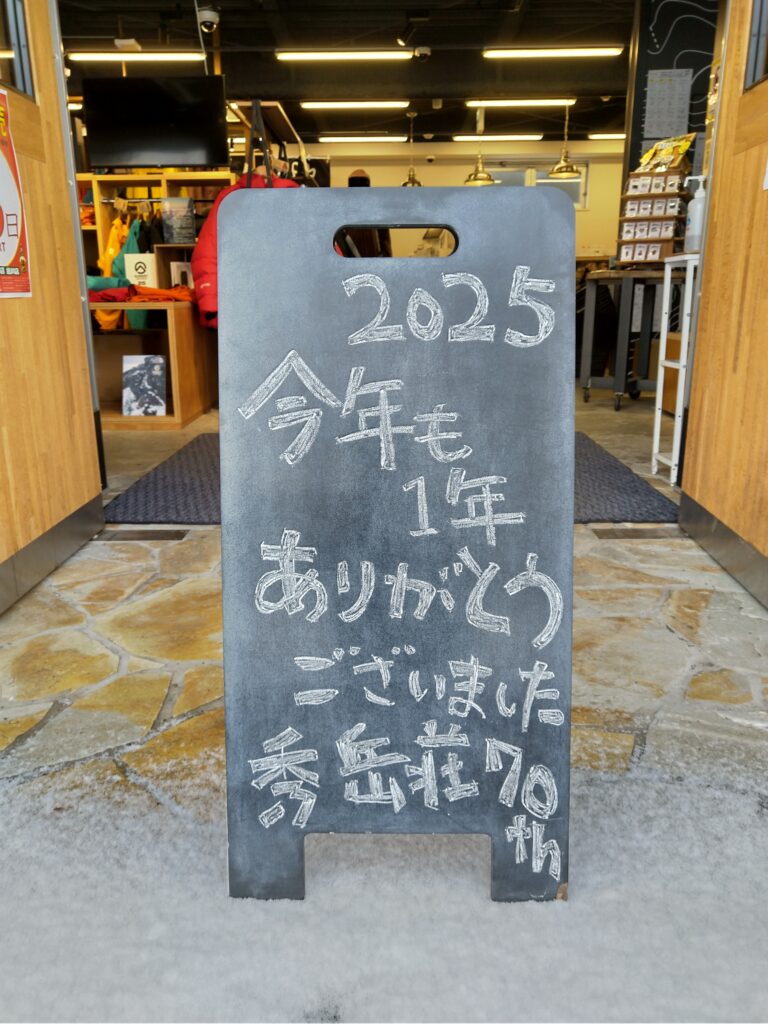 2025
今年も
1年
ありがとう
ございました
秀岳荘70
th
日